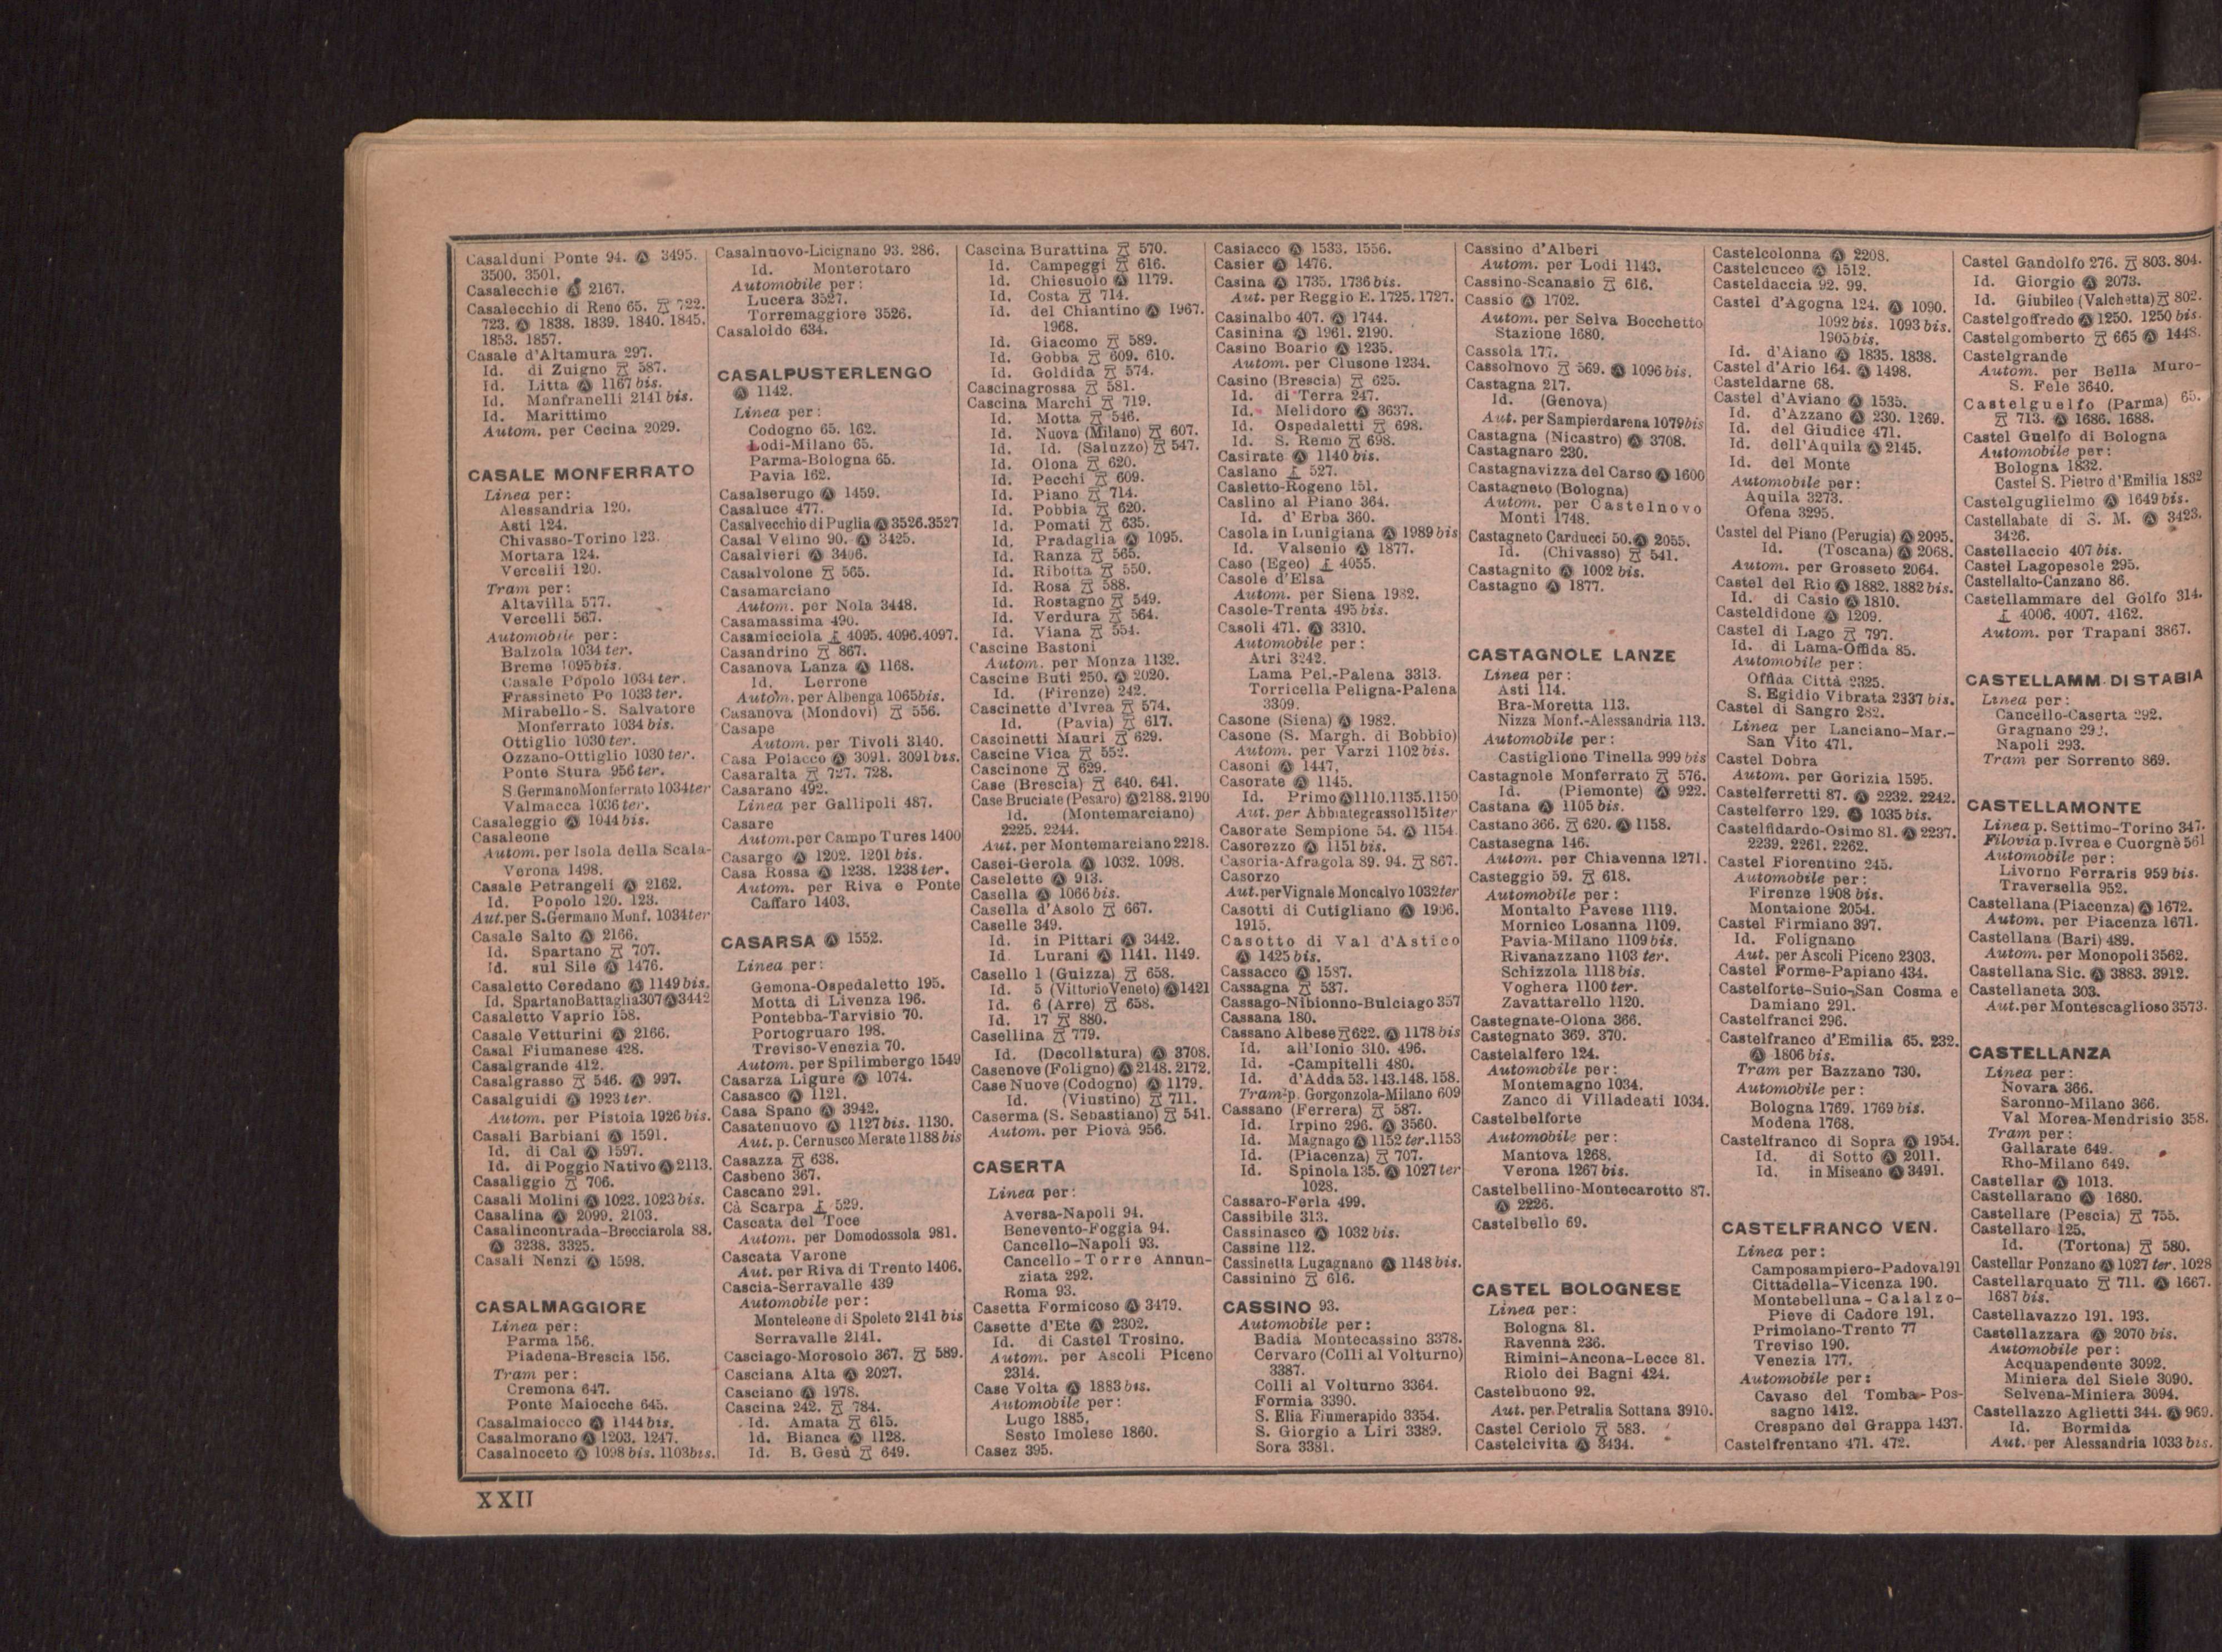 Casalduni Ponte 94. Ⓐ 3495.
3500. 3501.
Casalecchie Ⓐ 2167.
Casalecchio di Reno 65. 722.
723. Ⓐ 1838. 1839. 1840. 1845.
1853. 1857.
Casale d'Altamura 297.
Id. di Zuigno 587.
Id. Litta Ⓐ 1167 bis.
Id. Manfranelli 2141 bis.
Id. Marittimo
Autom. per Cecina 2029.
CASALE MONFERRATO
Linea per:
Alessandria 120.
Asti 124.
Chivasso-Torino 123.
Mortara 124.
Vercelli 120.
Tram per:
Altavilla 577.
Vercelli 567.
Automobile per:
Balzola 1034 ter.
Breme 1095 bis.
Casale Popolo 1034 ter.
Frassineto Po 1033 ter.
Mirabello-S. Salvatore
Monferrato 1034 bis.
Ottiglio 1030 ter.
Ozzano-Ottiglio 1030 ter.
Ponte Stura 956 ter.
S. Germano Monferrato 1034 ter
Valmacca 1036 ter.
Casaleggio Ⓐ 1044 bis.
Casaleone
Autom. per Isola della Scala-
Verona 1498.
Casale Petrangeli Ⓐ 2162.
Id. Popolo 120. 123.
Aut. per S. Germano Monf. 1034 ter
Casale Salto Ⓐ 2166.
Id. Spartano 707.
Id. sul Sile Ⓐ 1476.
Casaletto Ceredano Ⓐ 1149 bis.
Id. Spartano Battaglia 307 Ⓐ 3442
Casaletto Vaprio 158.
Casale Vetturini Ⓐ 2166.
Casal Fiumanese 428.
Casalgrande 412.
Casalgrasso 546. Ⓐ 997.
Casalguidi Ⓐ 1923 ter.
Autom. per Pistoia 1926 bis.
Casali Barbiani Ⓐ 1591.
Id. di Cal Ⓐ 1597.
Id. di Poggio Nativo Ⓐ 2113.
Casaliggio 706.
Casali Molini Ⓐ 1023. 1023 bis.
Casalina Ⓐ 2099. 2103.
Casalincontrada-Brecciarola 88.
Ⓐ 3238. 3325.
Casali Nenzi Ⓐ 1598.
CASALMAGGIORE
Linea per:
Parma 156.
Piadena-Brescia 156.
Tram per:
Cremona 647.
Ponte Maiocche 645.
Casalmaiocco Ⓐ 1144 bis.
Casalmorano Ⓐ 1203. 1247.
Casalnoceto Ⓐ 1098 bis. 1103 bis.
Casalnuovo-Licignano 93. 286.
Id. Monterotaro
Automobile per:
Lucera 3527.
Torremaggiore 3526.
Casaloldo 634.
CASALPUSTERLENGO
Ⓐ 1142.
Linea per:
Codogno 65. 162.
Lodi-Milano 65.
Parma-Bologna 65.
Pavia 162.
Casalserugo Ⓐ 1459.
Casaluce 477.
Casalvecchio di Puglia Ⓐ 3526.3527
Casal Velino 90. Ⓐ 3425.
Casalvieri Ⓐ 3406.
Casalvolone 565.
Casamarciano
Autom. per Nola 3448.
Casamassima 490.
Casamicciola 4095. 4096. 4097.
Casandrino 867.
Casanova Lanza Ⓐ 1168.
Id. Lerrone
Autom. per Albenga 1065 bis.
Casanova (Mondovì) 556.
Casape
Autom. per Tivoli 3140.
Casa Polacco Ⓐ 3091. 3091 bis.
Casaralta 727. 728.
Casarano 492.
Linea per Gallipoli 487.
Casare
Autom. per Campo Tures 1400
Casargo Ⓐ 1202. 1201 bis.
Casa Rossa Ⓐ 1238. 1238 ter.
Autom. per Riva e Ponte
Caffaro 1403.
CASARSA Ⓐ 1552.
Linea per:
Gemona-Ospedaletto 195.
Motta di Livenza 196.
Pontebba-Tarvisio 70.
Portogruaro 198.
Treviso-Venezia 70.
Autom. per Spilimbergo 1549
Casarza Ligure Ⓐ 1074.
Casasco Ⓐ 1121.
Casa Spano Ⓐ 3942.
Casatenuovo Ⓐ 1127 bis. 1130.
Aut. p. Cernusco Merate 1188 bis
Casazza 638.
Casbeno 367.
Cascano 291.
Cà Scarpa 529.
Cascata del Toce
Autom. per Domodossola 981.
Cascata Varone
Aut. per Riva di Trento 1406.
Cascia-Serravalle 439
Automobile per:
Monteleone di Spoleto 2141 bis
Serravalle 2141.
Casciago-Morosolo 367. 589.
Casciana Alta Ⓐ 2027.
Casciano Ⓐ 1978.
Cascina 242. 784.
Id. Amata 615.
Id. Bianca Ⓐ 1128.
Id. B. Gesù 649.
Cascina Burattina 570.
Id. Campeggi 616.
Id. Chiesuolo Ⓐ 1179.
Id. Costa 714.
Id. del Chiantino Ⓐ 1967.
1968.
Id. Giacomo 589.
Id. Gobba 609. 610.
Id. Goldida 574.
Cascinagrossa 581.
Cascina Marchi 719.
Id. Motta 546.
Id. Nuova (Milano) 607.
Id. Id. (Saluzzo) 547.
Id. Olona 620.
Id. Pecchi 609.
Id. Piano 714.
Id. Pobbia 620.
Id. Pomati 635.
Id. Pradaglia Ⓐ 1095.
Id. Ranza 565.
Id. Ribotta 550.
Id. Rosa 588.
Id. Rostagno 549.
Id. Verdura 564.
Id. Viana 554.
Cascine Bastoni
Autom. per Monza 1132.
Cascine Buti 250. Ⓐ 2020.
Id. (Firenze) 242.
Cascinette d'Ivrea 574.
Id. (Pavia) 617.
Cascinetti Mauri 629.
Cascine Vica 552.
Cascinone 629.
Case (Brescia) 640. 641.
Case Bruciate (Pesaro) Ⓐ 2188. 2190
Id. (Montemarciano)
2225. 2244.
Aut. per Montemarciano 2218.
Casei-Gerola Ⓐ 1032. 1098.
Caselette Ⓐ 913.
Casella Ⓐ 1066 bis.
Casella d'Asolo 667.
Caselle 349.
Id. in Pittari Ⓐ 3442.
Id. Lurani Ⓐ 1141. 1149.
Casello 1 (Guizza) 658.
Id. 5 (Vittorio Veneto) Ⓐ 1421
Id. 6 (Arre) 658.
Id. 17 880.
Casellina 779.
Id. (Decollatura) Ⓐ 3708.
Casenove (Foligno) Ⓐ 2148. 2172.
Case Nuove (Codogno) Ⓐ 1179.
Id. (Viustino) 711.
Caserma (S. Sebastiano) 541.
Autom. per Piovà 956.
CASERTA
Linea per:
Aversa-Napoli 94.
Benevento-Foggia 94.
Cancello-Napoli 93.
Cancello-Torre Annun-
ziata 292.
Roma 93.
Casetta Formicoso Ⓐ 3479.
Casette d'Ete Ⓐ 2302.
Id. di Castel Trosino.
Autom. per Ascoli Piceno
2314.
Case Volta Ⓐ 1883 bis.
Automobile per:
Lugo 1885.
Sesto Imolese 1860.
Casez 395.
Casiacco Ⓐ 1533. 1556.
Casier Ⓐ 1476.
Casina Ⓐ 1735. 1736 bis.
Aut. per Reggio E. 1725. 1727.
Casinalbo 407. Ⓐ 1744.
Casinina Ⓐ 1961. 2190.
Casino Boario Ⓐ 1235.
Autom. per Clusone 1234.
Casino (Brescia) 625.
Id. di Terra 247.
Id. Melidoro Ⓐ 3637.
Id. Ospedaletti 698.
Id. S. Remo 698.
Casirate Ⓐ 1140 bis.
Caslano 527.
Casletto-Rogeno 151.
Caslino al Piano 364.
Id. d'Erba 360.
Casola in Lunigiana Ⓐ 1989 bis
Id. Valsenio Ⓐ 1877.
Caso (Egeo) 4055.
Casole d'Elsa
Autom. per Siena 1982.
Casole-Trenta 495 bis.
Casoli 471. Ⓐ 3310.
Automobile per:
Atri 3242.
Lama Pel.-Palena 3313.
Torricella Peligna-Palena
3309.
Casone (Siena) Ⓐ 1982.
Casone (S. Margh. di Bobbio)
Autom. per Varzi 1102 bis.
Casoni Ⓐ 1447.
Casorate Ⓐ 1145.
Id. Primo Ⓐ 1110.1135.1150
Aut. per Abbiategrasso 1151 ter
Casorate Sempione 54. Ⓐ 1154
Casorezzo Ⓐ 1151 bis.
Casoria-Afragola 89. 94. 867.
Casorzo
Aut. per Vignale Moncalvo 1032 ter
Casotti di Cutigliano Ⓐ 1906.
1915.
Casotto di Val d'Astico
Ⓐ 1425 bis.
Cassacco Ⓐ 1587.
Cassagna 537.
Cassago-Nibionno-Bulciago 357
Cassana 180.
Cassano Albese 622. Ⓐ 1178 bis
Id. all'Ionio 310. 496.
Id. -Campitelli 480.
Id. d'Adda 53. 143. 148. 158.
Tram p. Gorgonzola-Milano 609
Cassano (Ferrera) 587.
Id. Irpino 296. Ⓐ 3560.
Id. Magnago Ⓐ 1152 ter. 1153
Id. (Piacenza) 707.
Id. Spinola 135. Ⓐ 1027 ter
1028.
Cassaro-Ferla 499.
Cassibile 313.
Cassinasco Ⓐ 1032 bis.
Cassine 112.
Cassinetta Lugagnano Ⓐ 1148 bis.
Cassinino 616.
CASSINO 93.
Automobile per:
Badia Montecassino 3378.
Cervaro (Colli al Volturno)
3387.
Colli al Volturno 3364.
Formia 3390.
S. Elia Fiumerapido 3354.
S. Giorgio a Liri 3389.
Sora 3381.
Cassino d'Alberi
Autom. per Lodi 1143.
Cassino-Scanasio 616.
Cassio Ⓐ 1702.
Autom. per Selva Bocchetto
Stazione 1680.
Cassola 177.
Cassolnovo 569. Ⓐ 1096 bis.
Castagna 217.
Id. (Genova)
Aut. per Sampierdarena 1079 bis
Castagna (Nicastro) Ⓐ 3708.
Castagnaro 230.
Castagnavizza del Carso Ⓐ 1600
Castagneto (Bologna)
Autom. per Castelnovo
Monti 1748.
Castagneto Carducci 50. Ⓐ 2055.
Id. (Chivasso) 541.
Castagnito Ⓐ 1002 bis.
Castagno Ⓐ 1877.
CASTAGNOLE LANZE
Linea per:
Asti 114.
Bra-Moretta 113.
Nizza Monf.-Alessandria 113.
Automobile per:
Castiglione Tinella 999 bis
Castagnole Monferrato 576.
Id. (Piemonte) Ⓐ 922.
Castana Ⓐ 1105 bis.
Castano 366. 620. Ⓐ 1158.
Castasegna 146.
Autom. per Chiavenna 1271.
Casteggio 59. 618.
Automobile per:
Montalto Pavese 1119.
Mornico Losanna 1109.
Pavia-Milano 1109 bis.
Rivanazzano 1103 ter.
Schizzola 1118 bis.
Voghera 1100 ter.
Zavattarello 1120.
Castegnate-Olona 366.
Castegnato 369. 370.
Castelalfero 124.
Automobile per:
Montemagno 1034.
Zanco di Villadeati 1034.
Castelbelforte
Automobile per:
Mantova 1268.
Verona 1267 bis.
Castelbellino-Montecarotto 87.
Ⓐ 2226.
Castelbello 69.
CASTEL BOLOGNESE
Linea per:
Bologna 81.
Ravenna 236.
Rimini-Ancona-Lecce 81.
Riolo dei Bagni 424.
Castelbuono 92.
Aut. per Petralia Sottana 3910.
Castel Ceriolo 583.
Castelcivita Ⓐ 3434.
Castelcolonna Ⓐ 2208.
Castelcucco Ⓐ 1512.
Casteldaccia 92. 99.
Castel d'Agogna 124. Ⓐ 1090.
1092 bis. 1093 bis.
1905 bis.
Id. d'Aiano Ⓐ 1835. 1838.
Castel d'Ario 164. Ⓐ 1498.
Casteldarne 68.
Castel d'Aviano Ⓐ 1535.
Id. d'Azzano Ⓐ 230. 1269.
Id. del Giudice 471.
Id. dell'Aquila Ⓐ 2145.
Id. del Monte
Automobile per:
Aquila 3273.
Ofena 3295.
Castel del Piano (Perugia) Ⓐ 2095.
Id. (Toscana) Ⓐ 2068.
Autom. per Grosseto 2064.
Castel del Rio Ⓐ 1882. 1882 bis.
Id. di Casio Ⓐ 1810.
Casteldidone Ⓐ 1209.
Castel di Lago 797.
Id. di Lama-Offida 85.
Automobile per:
Offida Città 2325.
S. Egidio Vibrata 2337 bis.
Castel di Sangro 282.
Linea per Lanciano-Mar.-
San Vito 471.
Castel Dobra
Autom. per Gorizia 1595.
Castelferretti 87. Ⓐ 2232. 2242.
Castelferro 129. Ⓐ 1035 bis.
Castelfidardo-Osimo 81. Ⓐ 2237.
2239. 2261. 2262.
Castel Fiorentino 245.
Automobile per:
Firenze 1908 bis.
Montaione 2054.
Castel Firmiano 397.
Id. Folignano
Aut. per Ascoli Piceno 2303.
Castel Forme-Papiano 434.
Castelforte-Suio-San Cosma e
Damiano 291.
Castelfranci 296.
Castelfranco d'Emilia 65. 232.
Ⓐ 1806 bis.
Tram per Bazzano 730.
Automobile per:
Bologna 1769. 1769 bis.
Modena 1768.
Castelfranco di Sopra Ⓐ 1954.
Id. di Sotto Ⓐ 2011.
Id. in Miseano Ⓐ 3491.
CASTELFRANCO VEN.
Linea per:
Camposampiero-Padova 191
Cittadella-Vicenza 190.
Montebelluna-Calalzo-
Pieve di Cadore 191.
Primolano-Trento 77
Treviso 190.
Venezia 177.
Automobile per:
Cavaso del Tomba-Pos-
sagno 1412.
Crespano del Grappa 1437.
Castelfrentano 471. 472.
Castel Gandolfo 276. 803. 804.
Id. Giorgio Ⓐ 2073.
Id. Giubileo (Valchetta) 802.
Castelgoffredo Ⓐ 1250. 1250 bis.
Castelgomberto 665 Ⓐ 1448.
Castelgrande
Autom. per Bella Muro-
S. Fele 3640.
Castelguelfo (Parma) 65.
713. Ⓐ 1686. 1688.
Castel Guelfo di Bologna
Automobile per:
Bologna 1832.
Castel S. Pietro d'Emilia 1832
Castelguglielmo Ⓐ 1649 bis.
Castellabate di S. M. Ⓐ 3423.
3426.
Castellaccio 407 bis.
Castel Lagopesole 295.
Castellalto-Canzano 86.
Castellammare del Golfo 314.
4006. 4007. 4162.
Autom. per Trapani 3867.
CASTELLAMM. DI STABIA
Linea per:
Cancello-Caserta 292.
Gragnano
Napoli 293.
Tram per Sorrento 869.
CASTELLAMONTE
Linea p. Settimo-Torino 347.
Filovia p. Ivrea e Cuorgnè 561
Automobile per:
Livorno Ferraris 959 bis.
Traversella 952.
Castellana (Piacenza) Ⓐ 1672.
Autom. per Piacenza 1671.
Castellana (Bari) 489.
Autom. per Monopoli 3562.
Castellana Sic. Ⓐ 3883. 3912.
Castellaneta 303.
Aut. per Montescaglioso 3573.
CASTELLANZA
Linea per:
Novara 366.
Saronno-Milano 366.
Val Morea-Mendrisio 358.
Tram per:
Gallarate 649.
Rho-Milano 649.
Castellar Ⓐ 1013.
Castellarano Ⓐ 1680.
Castellare (Pescia) 755.
Castellaro 125.
Id. (Tortona) 580.
Castellar Ponzano Ⓐ 1027 ter. 1028
Castellarquato 711. Ⓐ 1667.
1687 bis.
Castellavazzo 191. 193.
Castellazzara Ⓐ 2070 bis.
Automobile per:
Acquapendente 3092.
Miniera del Siele 3090.
Selvena-Miniera 3094.
Castellazzo Aglietti 344. Ⓐ 969.
Id. Bormida
Aut. per Alessandria 1033 bis.
XXII